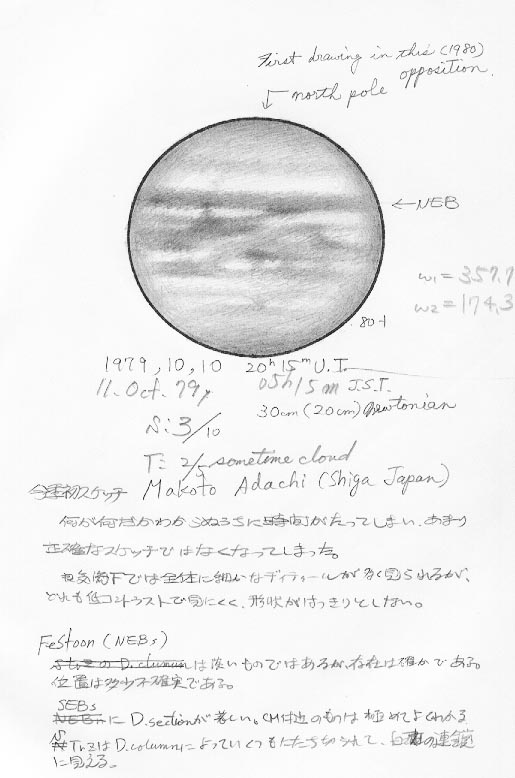 First drawing in this (1980)
opposition.
north pole
←NEB
ω1=357.7
ω2=174.3
80-1
1979, 10, 10 20h 15m U.T.
11. Oct. 79y 05h 15m J.S.T.
30cm (20cm) Newtonian
S: 3/10
T: 2/5 sometime cloud
初スケッチ Makoto Adachi (Shiga Japan)
何が何だかわからぬうちに時間がたってしまい、あまり
正確なスケッチではなくなってしまった。
下では全体に細かなディティールが多く見られるが、
どれも低コントラストで見にくく、形状がはっきりとしない。
Festoon (NEBs)
は淡いものではあるが、存在は確かである。
位置は多少不確実である。
SEBs
に D.sectionが著しい。CM付近のものは極めてよくわかる
S
TrZはD.columnによっていくつもにたち切られて、白の連鎖
に見える。